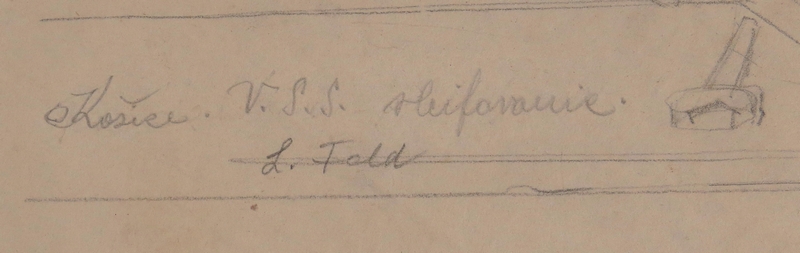 Košice. V.S.S. šleifovanie.
L. Feld